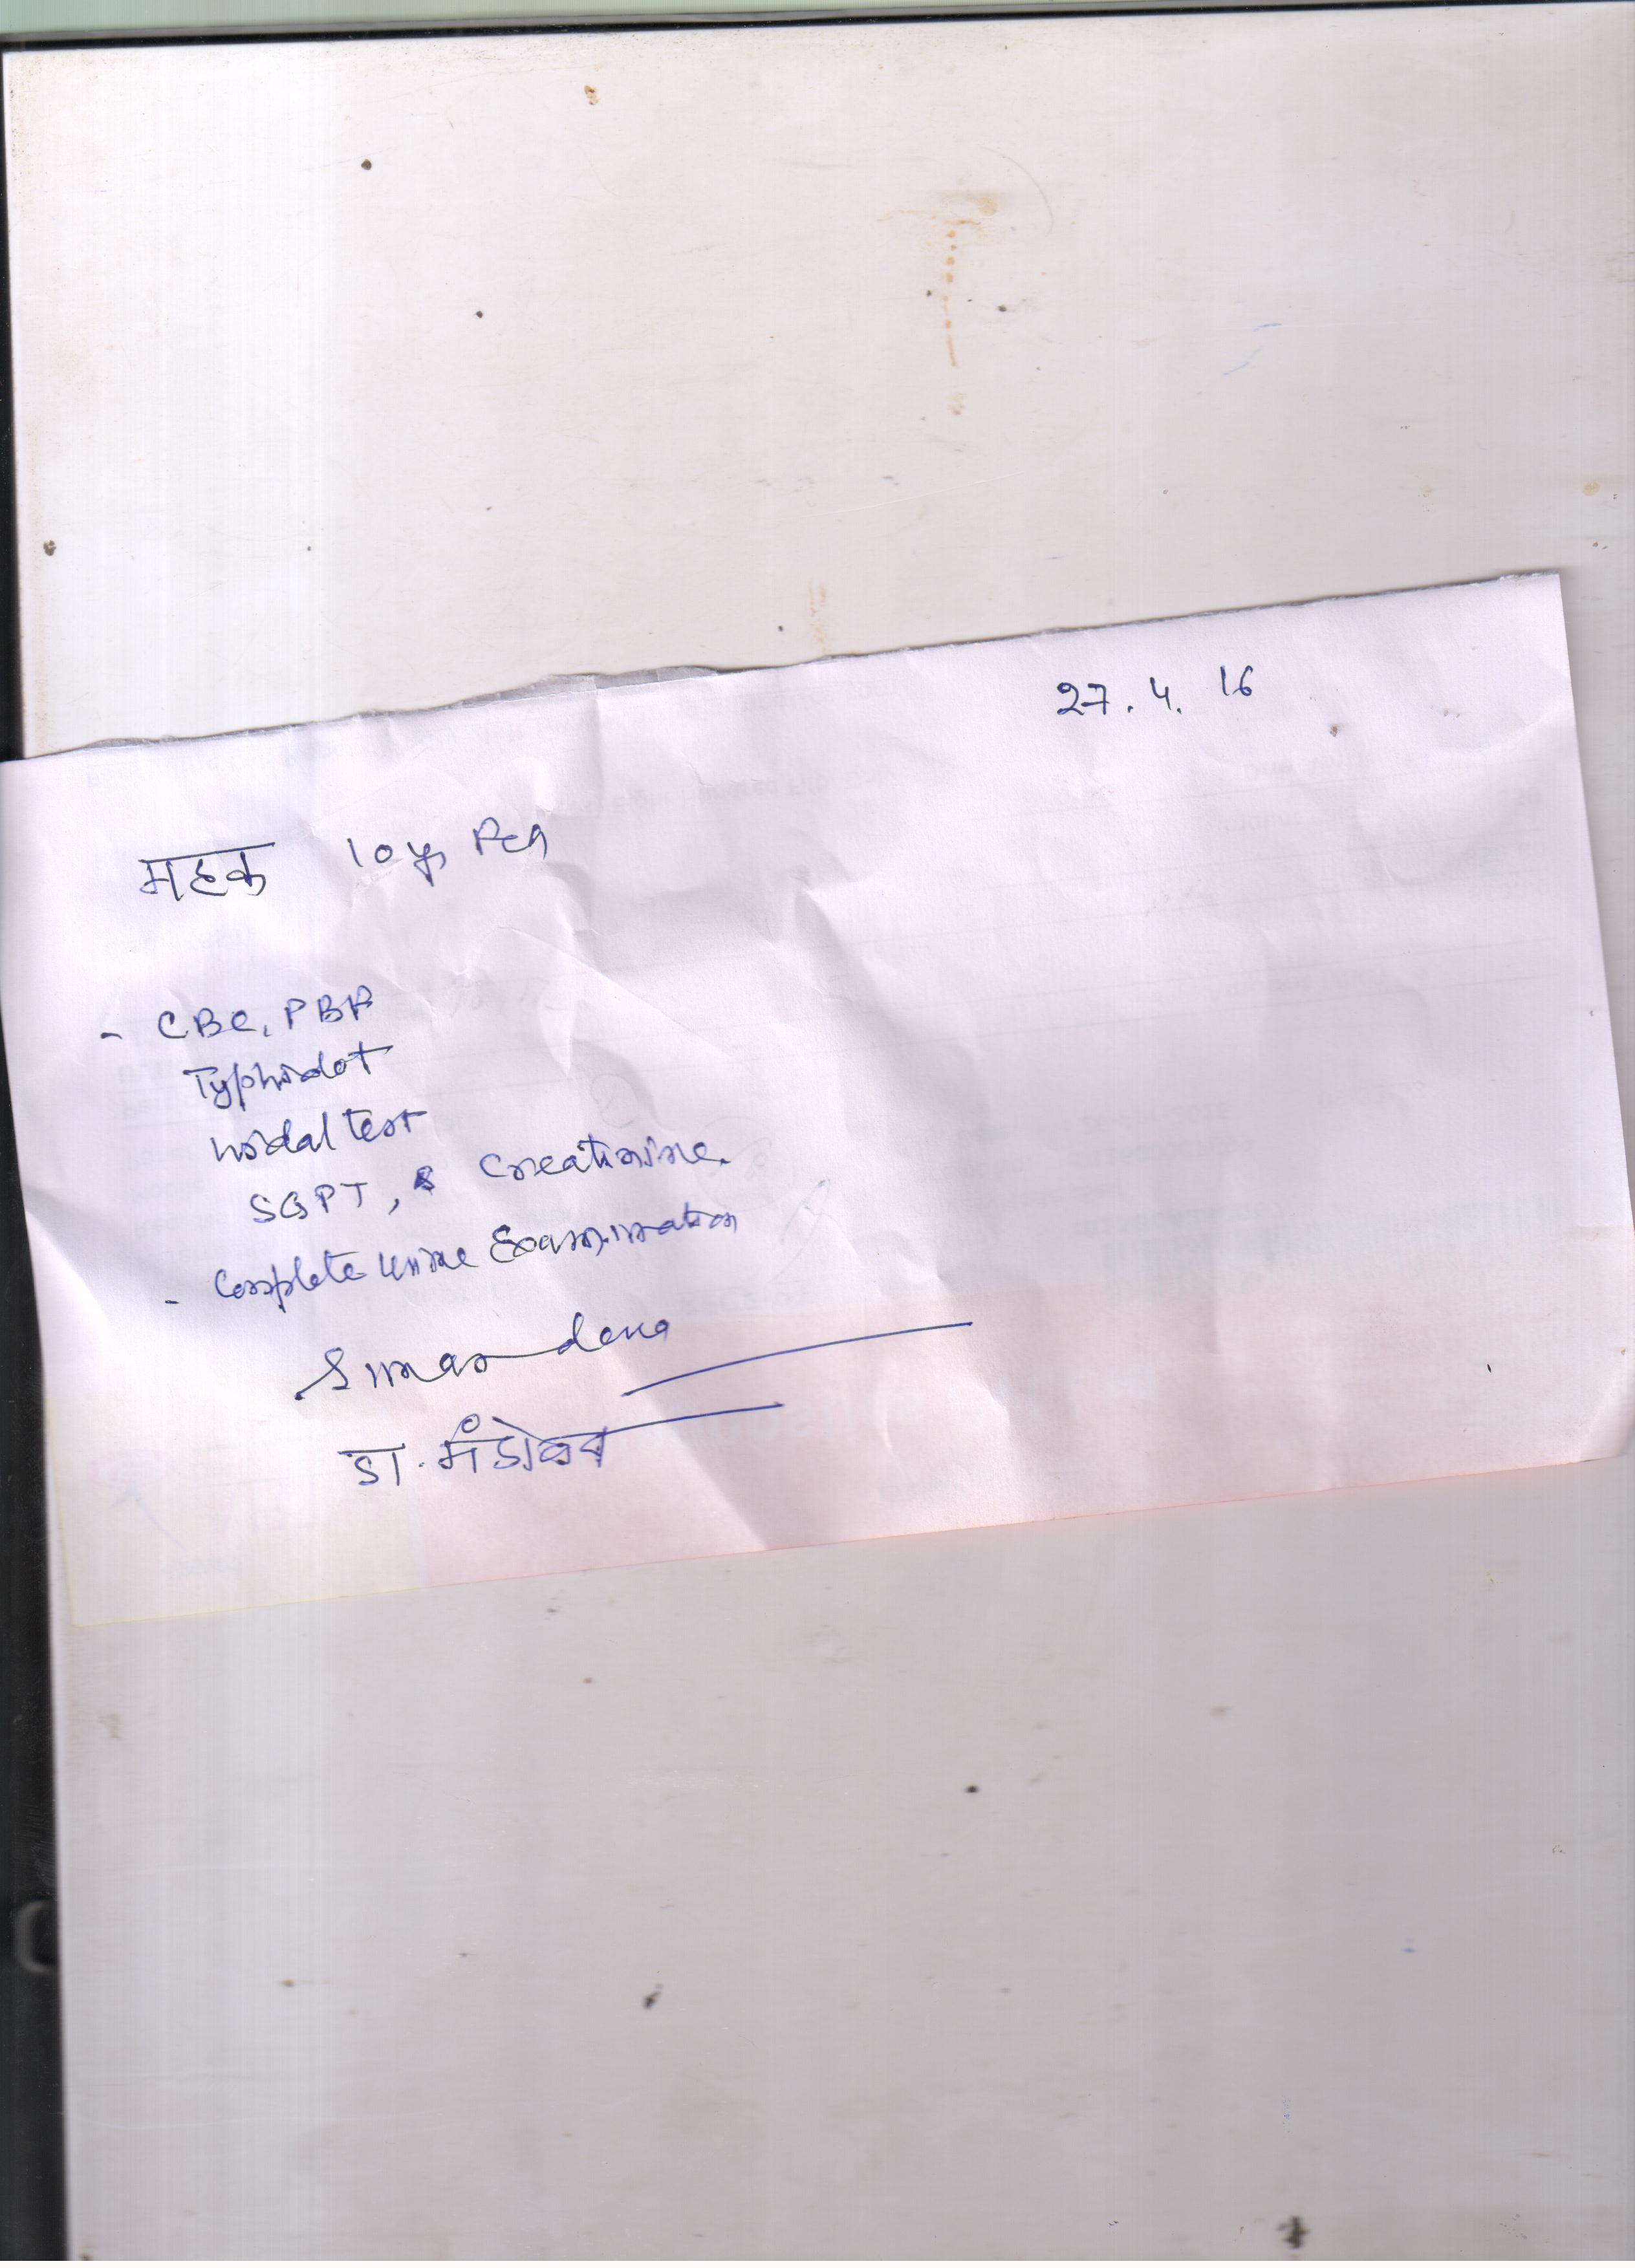 27.4.16
महक 10 yr
- CBC, PBF
Typhidot
widal test
SGPT, S Creatinine.
- Complete urine Examination
डा. मंडोवरा